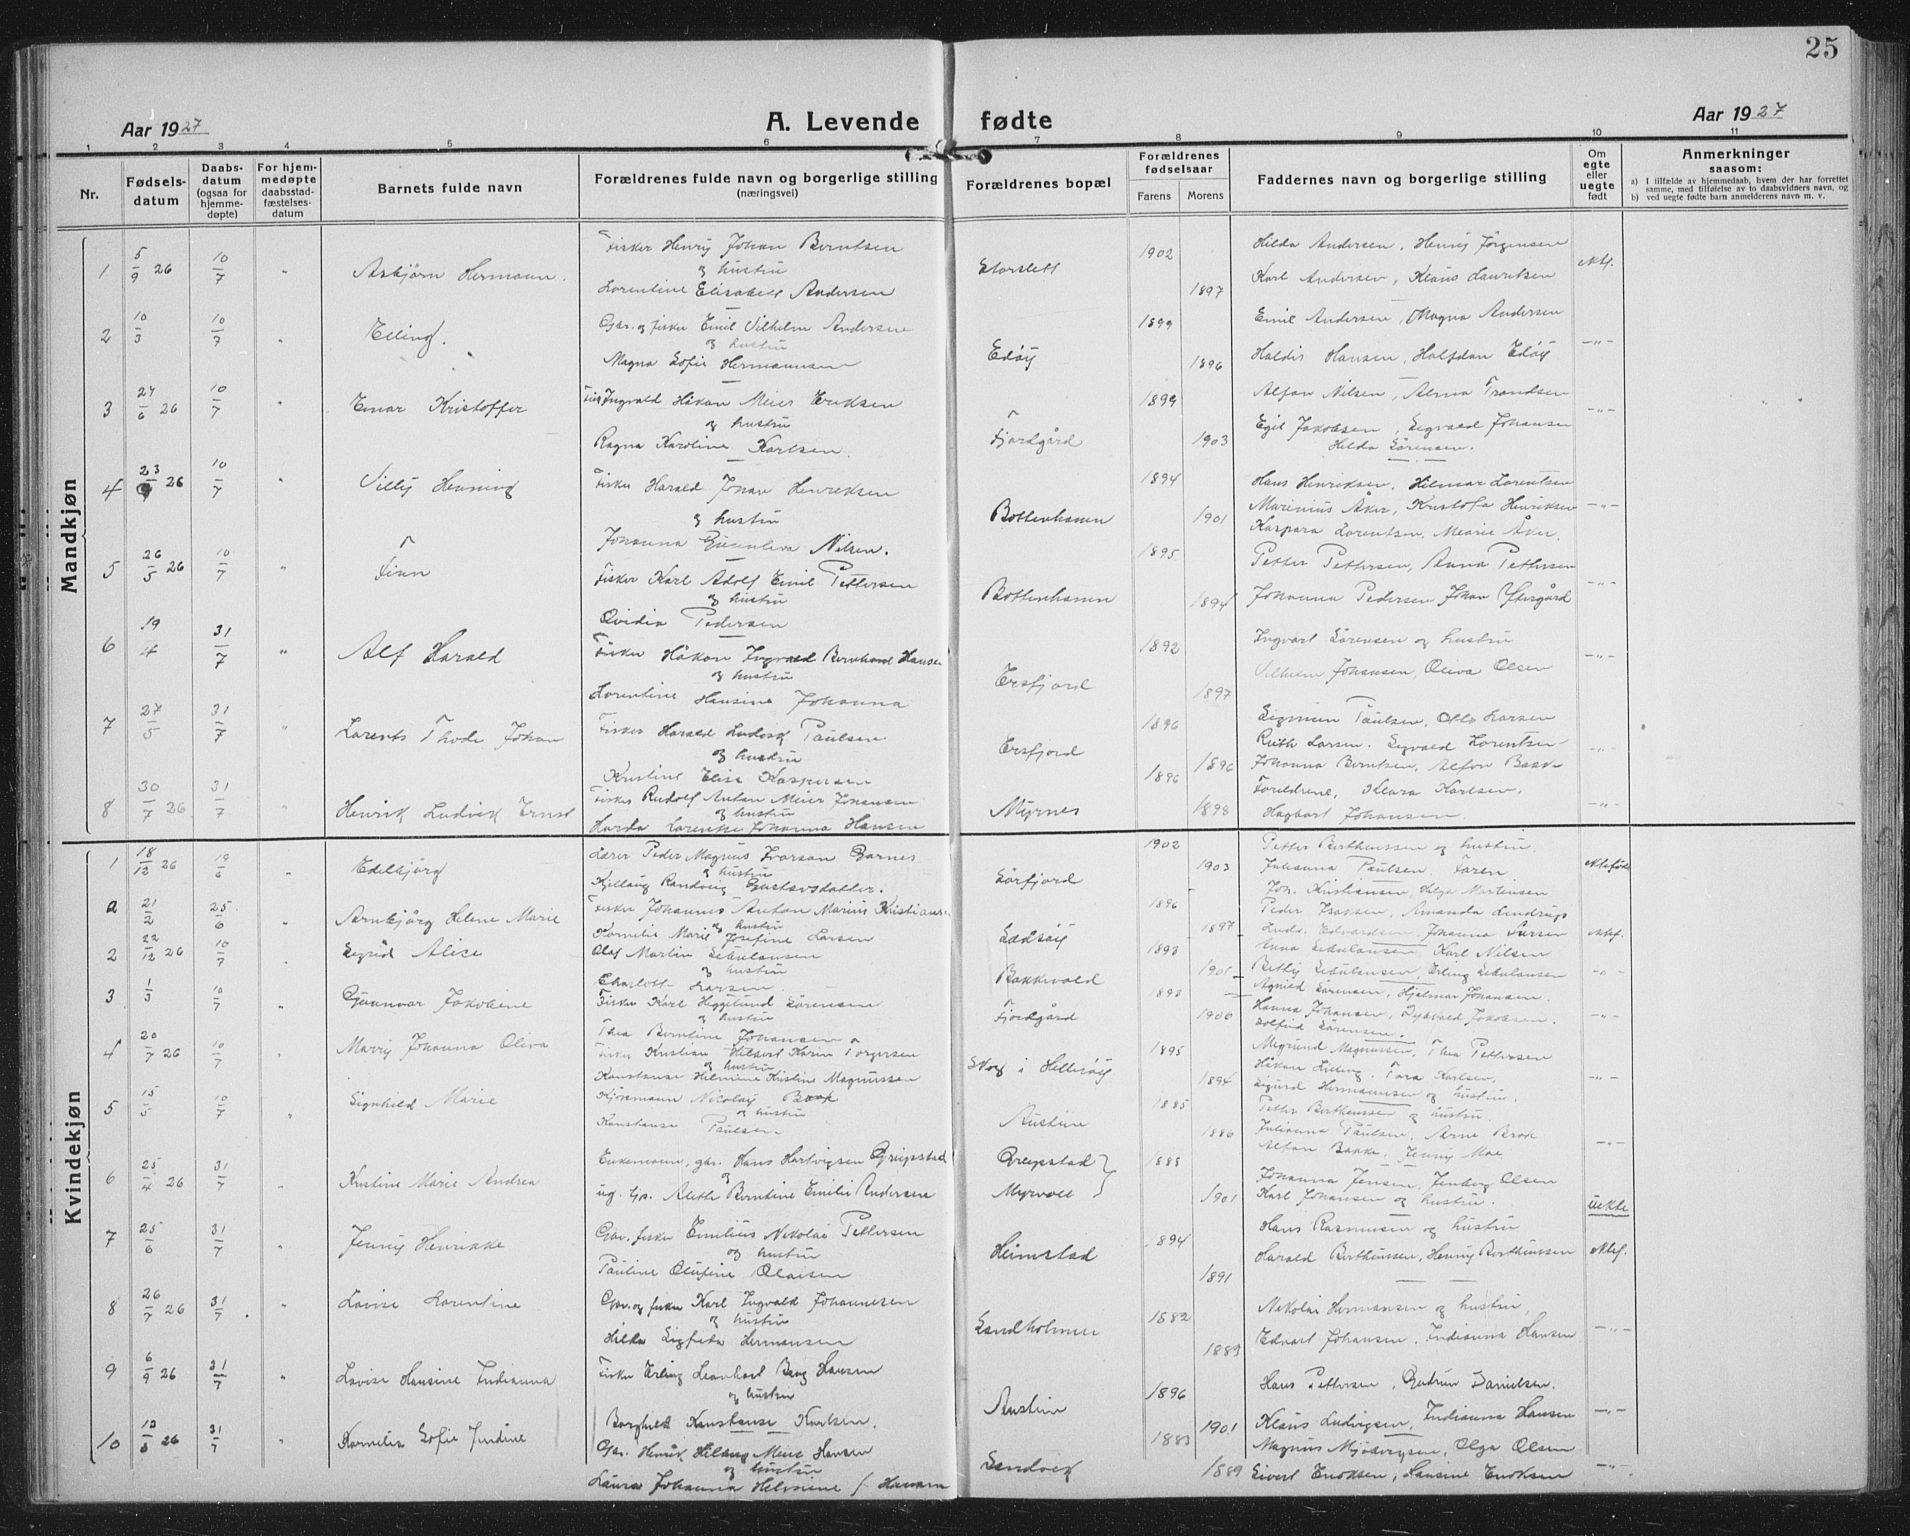 25
Aar 1927
A. Levende fødte
Aar 1927
1 2 3 4 5 6 7 8 9 10 11
Nr.
Fødsels-datum
Daabs-datum (ogsaa for hjemme-døpte)
For hjem-medøpte daabsstad-fæstelses-datum
Barnets fulde navn
Forældrenes fulde navn og borgerlige stilling (næringsvei)
Forældrenes bopæl
Forældrenes fødselsaar
Farens Morens
Faddernes navn og borgerlige stilling
Om egte eller uegte født
Anmerkninger saasom:
a) I tilfælde av hjemmedaab, hvem der har forrettet samme, med tilføielse av to daabsvidners navn, og
b) ved uegte fødte barn anmelderens navn m. v.
Mandkjøn
1 5/9 26 10/7 " Asbjørn Hermann.
Fisker Henry Johan Berntsen
og hustru
Lorentine Elisabeth Andersen
Storslett 1902 1897
Hilda Andersen, Henry Jørgensen
Karl Andersen, Klaus Lauritsen
ektef.
2 10/3 10/7 " Elling.
Gbr. og fisker Emil Vilhelm Andersen
og hustru
Magna Sofie Hermannsen
Edøy 1899 1896
Emil Andersen, Magna Andersen
Haldis Hansen, Halfdan Edøy
—"—
3 24/6 26 10/7 " Einar Kristoffer
Fisk. Ingvald Håkon Meier Eriksen
og hustru
Ragna Karoline Karlsen.
Fjordgård 1899 1903
Alfon Nilsen, Alma Trondsen
Egil Jakobsen, Sigvald Johansen
Hilda Sørensen.
—"—
4 23/9 26 10/7 " Villy Henning
Fisker Harald Johan Henriksen
og hustru
Johanna Nilsen.
Bottenhamn 1894 1901
Hans Henriksen, Hilmar Lorentsen
Marinius Åker, Kristofa Henriksen
Kaspara Lorentsen, Mearie Åker.
—"—
5 26/5 26 10/7 " Finn
Fisker Karl Adolf Emil Pettersen
og hustru
Ovidia Pedersen
Bottenhamn 1895 1894
Petter Pettersen, Anna Pettersen
Johanna Pedersen Johan Øfsergård
—"—
6 19/4 31/7 " Alf Harald
Fisker Håkon Ingvald Bernhard Hansen
og hustru
Lorentine Hansine Johanna
Ersfjord 1892 1897
Ingvart Sørensen og hustru
Vilhelm Johansen, Oliva Olsen
—"—
7 27/5 31/7 " Lorents Thode Johan
Fisker Harald Ludvik Paulsen
og hustru
Kristine Elise Kaspersen
Ersfjord 1896 1896
Sigmun Paulsen, Otto Larsen
Ruth Larsen. Sigvald Lorentsen
Johanna Berntsen, Alfon Bakke
—"—
8 30/7 26 31/7 " Henrik Ludvik Ernst
Fisker Rudolf Anton Meier Johansen
og hustru
Harda Lorentse Johanna Hansen
Myrnes 1896 1898
Foreldrene, Klara Karlsen.
Hagbart Johansen.
—"—
Kvindekjøn
1 18/12 26 19/6 " Edelbjørg
Lærer Peder Magnus Ivarson Garnes
og hustru
Kjellaug Randveig Gustavsdatter.
Sørfjord 1902 1903
Petter Berthenssen og hustru.
Julianna Paulsen. Faren
ektefødt
2 21/2 25/6 " Arnbjørg Helene Marie
Fisker Johannes Anton Marius Kristiansen
og hustru
Kornelie Marie Josefine Larsen
1896 1897
Joh. Kristiansen, Helga Mortensen
Peder Isaksen, Amanda Lendrup
Ludv. Edvardsen, Johanna Larsen
ektef.
2 22/12 26 10/7 " Sigrid Alise
Olaf Martin Sebulansen
og hustru
Charlotte Larsen
Bakkevold 1893 1901
Anna Sebulansen, Karl Nilsen
Bethy Sebulansen, Erling Sebulansen
—"—
3 1/3 10/7 " Gunnvor Jakobine
Fisker Karl Heggelund Sørensen
og hustru
Thea Berntine Johansen
Fjordgård 1898 1906
Agnild Sørensen, Hjalmar Johansen.
Hanna Johansen, Sigvald Jakobsen.
Solfrid Sørensen.
—"—
4 20/7 26 10/7 " Marry Johanna Oliva
Fisker Kristian Hilbert Karin Torgersen
og hustru
Konstanse Helmine Kristine Magnussen
Skog i Hillesøy 1895 1894
Magnussen, Thea Pettersen
Håkon Lilleng. Tora Karlsen,
Sigurd Hermannsen og hustru.
—"—
5 15/5 10/7 " Signhild Marie
Kjøpmann Nikolay Brox
og hustru
Konstanse Paulsen
Austine 1885 1886
Petter Berthenssen og hustru
Julianna Paulsen, Arne Brox
—"—
6 25/4 26 31/7 " Kristine Marie Andrea
Enkemann, gbr. Hans Hartvigsen Greipstad
og
ug. tj. Aleth Berntine Emilie Andersen
Greipstad
Myrvoll
1888 1901
Alfon Bakke, Jenny Moe
Johanna Jensen, Jenberg Olsen
Karl Johansen og hustru.
uekte
7 25/6 31/7 " Jenny Henrikke
Gbr. fisker Emilius Nikolai Pettersen
og hustru
Pauline Olufine Olaisen
Heimstad 1894 1891
Hans Rasmussen og hustru
Harald Berthinssen, Henny Berthinssen
ektef.
8 26/7 26 31/7 " Lovise Lorentine
Gbr. og fisker Karl Ingvald Johannesen
og hustru
Hilda Sigfrida Hermansen
Sandholmen 1882 1889
Nikolai Hermansen og hustru,
Edvart Johansen, Indianna Hansen
—"—
9 6/9 26 31/7 " Lovise Hansine Indianna
Fisker Erling Leonhard Berg Hansen
og hustru
Borghild Konstanse Karlsen.
Austin 1896 1901
Hans Pettersen, Gudrun Danielsen.
Klaus Ludvigsen, Indianna Hansen
—"—
10 26 31/7 " Kornelia Sofie Jordine
Gbr. Henrik Meier Hansen
og hustru
Laura Johanna Helmine f. Hansen
Sandvik 1883 1889
Magnus Mjødvigsen, Olga Olsen
Sivert Enoksen, Hansine Enoksen
—"—